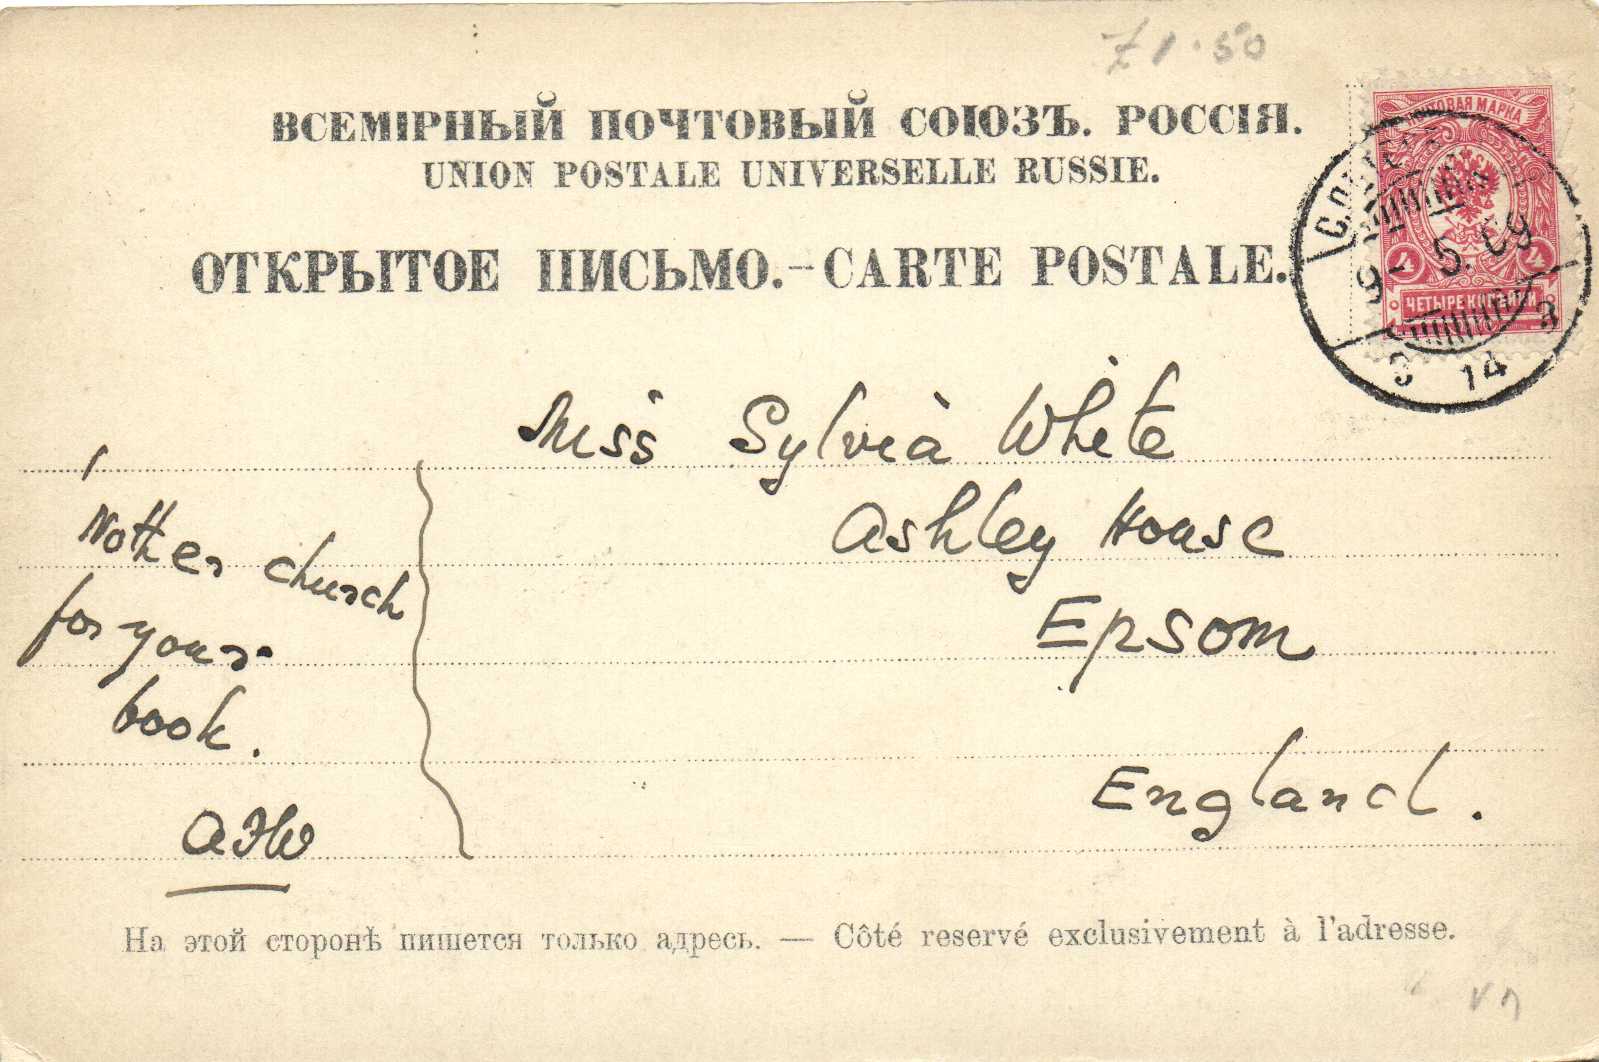 £1.50
ВСЕМІРНЫЙ ПОЧТОВЫЙ СОЮЗЪ. РОССІЯ.
UNION POSTALE UNIVERSELLE RUSSIE.
ОТКРЫТОЕ ПИСЬМО.–CARTE POSTALE.
ПОЧТОВАЯ МАРКА
4 4
ЧЕТЫРЕ КОПѢЙКИ
9- 5. 09
14
Miss Sylvia White
Ashley House
Epsom
England.
'Nother church
for your
book.
На этой сторонѣ пишется только адресъ. — Côté reservé exclusivement à l'adresse.